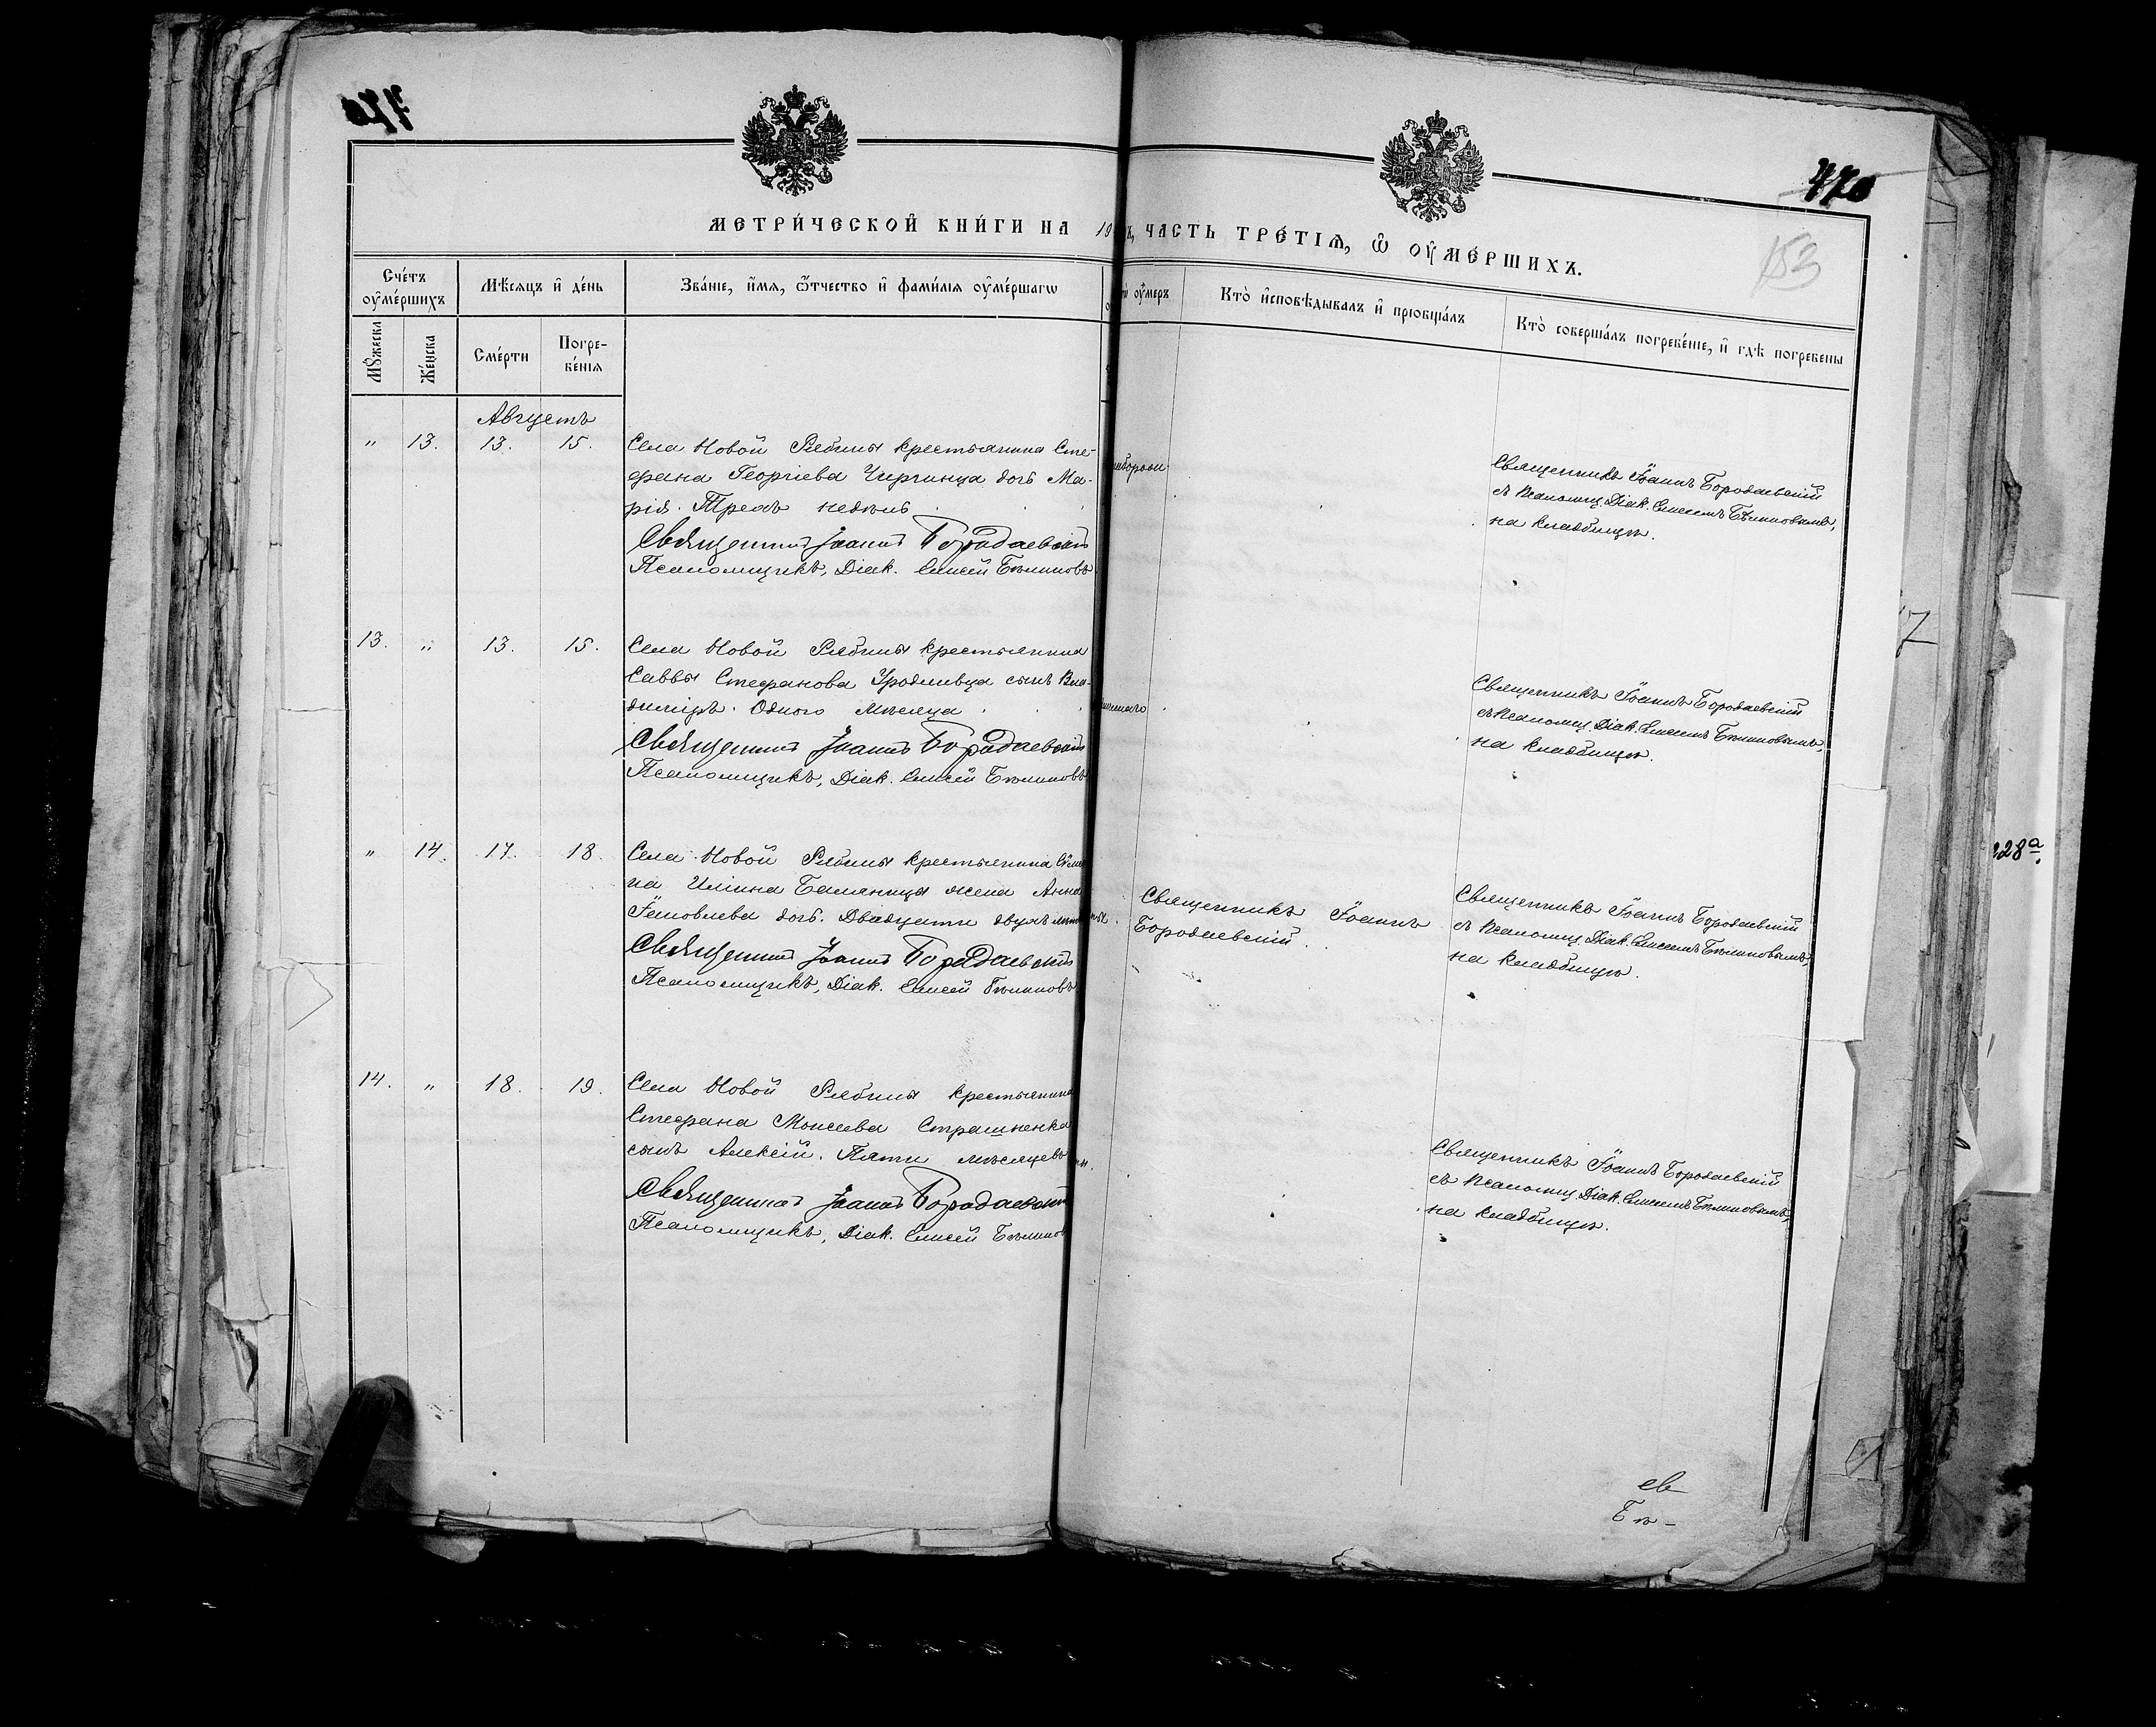 470
153
МЕТРИ́ЧЕСКОЙ КНИ́ГИ НА 19
, ЧАСТЬ ТРЕ́ТІѦ, Ѿ ОУМЕ́РШИХЪ.
Сче́тъ оуме́ршихъ
Мѣ́сяцъ и де́нь
Зва́ніе, и́мя, о́тчество и фами́лія оуме́ршагѡ
оумеръ
Кто̀ исповѣ́дывалъ и пріобща́лъ
Кто̀ соверша́лъ погребе́ніе, и гдѣ̀ погребены
Мꙋ́жеска
Же́нска
Сме́рти
Погре-
бе́нія
Августъ
" 13. 13. 15. Села Новой Рябины крестьянина Сте-
фана Георгіева Чиргинца дочь Ма-
рія. Трехъ недѣль
Священникъ Іоаннъ Бородаевскій
Псаломщикъ, Діак. Елисей Бѣлиновъ
Священникъ Іоаннъ Бородаевскій
съ псаломщ. Діак. Елисеемъ Бѣлиновымъ,
на кладбищѣ.
13. " 13. 15. Села Новой Рябины крестьянина
Саввы Стефанова сынъ Вла-
диміръ. Одного мѣсяца
Священникъ Іоаннъ Бородаевскій
Псаломщикъ, Діак. Елисей Бѣлиновъ
Священникъ Іоаннъ Бородаевскій
съ псаломщ. Діак. Елисеемъ Бѣлиновымъ,
на кладбищѣ.
" 14. 17. 18. Села Новой Рябины крестьянина
на Иліина жена Анна
Іаковлева дочь. Двадцати двухъ лѣтъ
Священникъ Іоаннъ Бородаевскій
Псаломщикъ, Діак. Елисей Бѣлиновъ
Священникъ Іоаннъ
Бородаевскій
Священникъ Іоаннъ Бородаевскій
съ псаломщ. Діак. Елисеемъ Бѣлиновымъ,
на кладбищѣ.
14. " 18. 19. Села Новой Рябины крестьянина
Стефана Моисеева Страшненка
сынъ Алексій. Пяти мѣсяцевъ
Священникъ Іоаннъ Бородаевскій
Псаломщикъ, Діак. Елисей Бѣлиновъ
Священникъ Іоаннъ Бородаевскій
съ псаломщ. Діак. Елисеемъ Бѣлиновымъ,
на кладбищѣ.
Бѣ-
7
228а